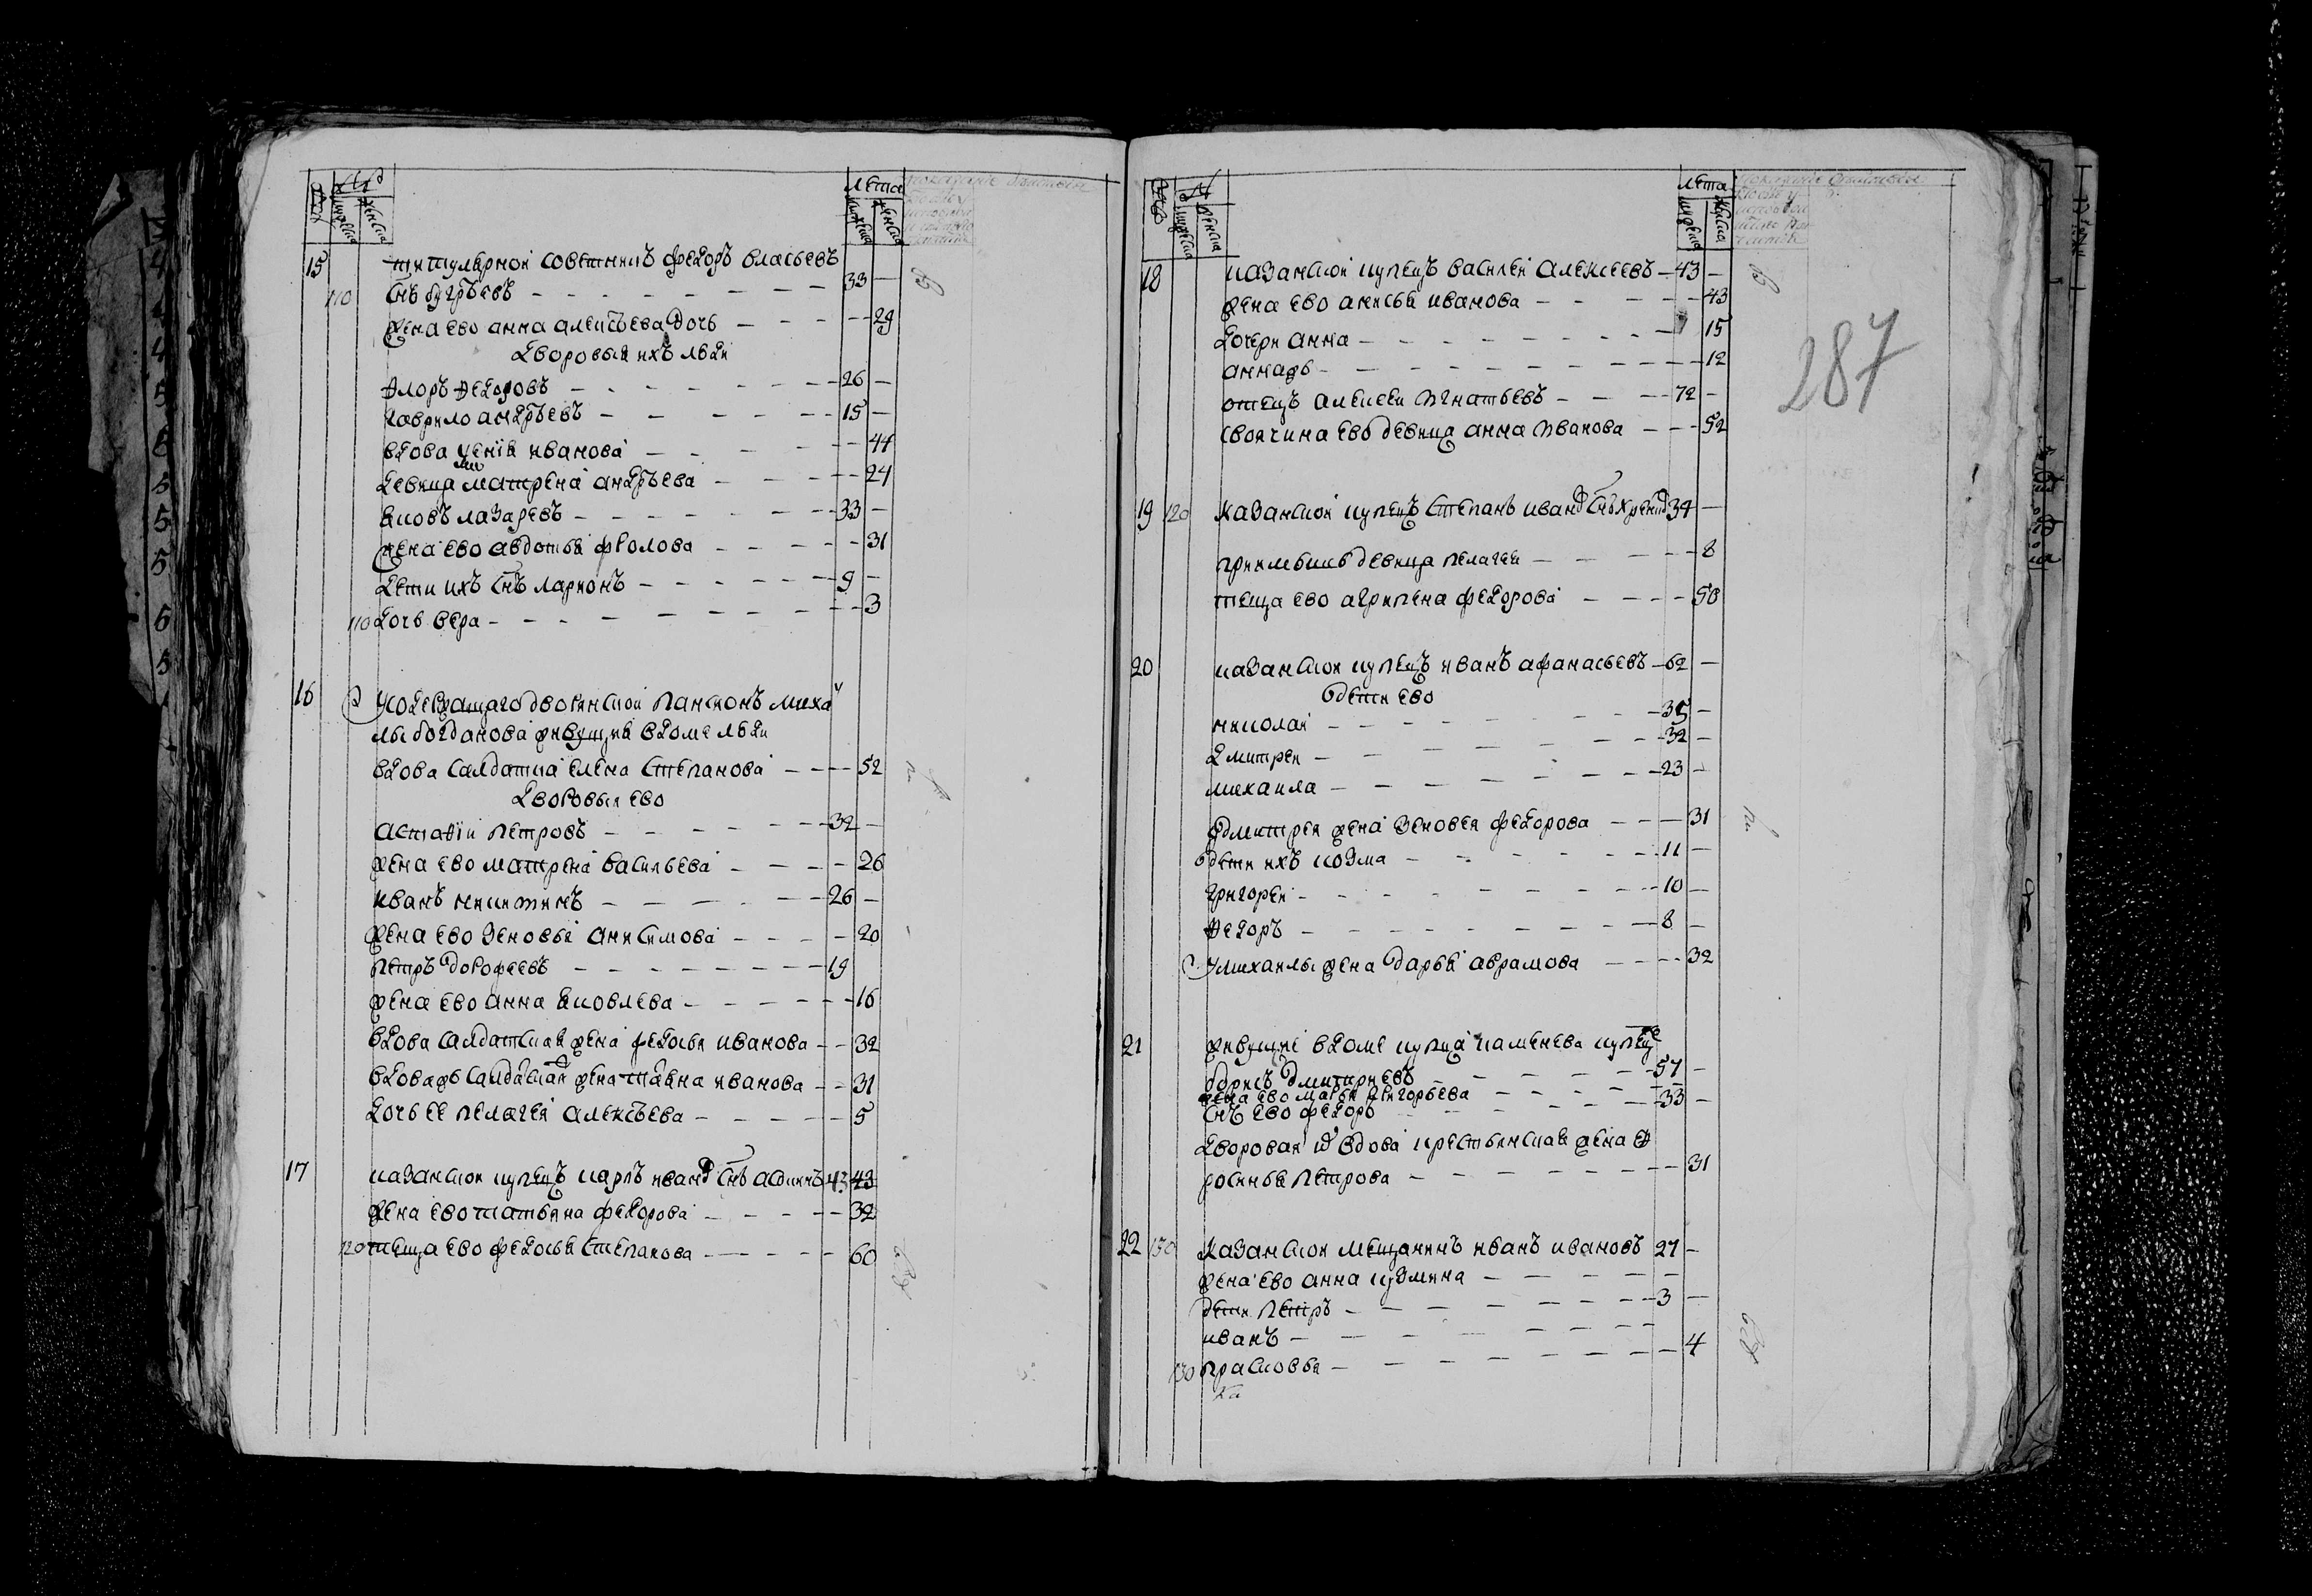 лета
15 титулярной советникъ федоръ власьевъ
110 снъ бугрѣевъ 33
жена ево анна алексѣева дочь 29
дворовыя ихъ люди
Ѳлоръ Ѳедоровъ 26
гаврило андрѣевъ 15
вдова ксенія иванова 44
девица матрена андрѣева 24
яковъ лазаревъ 33
жена ево авдотья фролова 31
дети ихъ снъ ларионъ 9
110 дочь вера 3
16 у содержащаго дворянской пансионъ миха
лы богданова живущия в доме люди
вдова салдатка елена степанова 52
дворовыя ево
астафіи петровъ 32
жена ево матрена васильева 26
иванъ никитинъ 26
жена ево зеновья анисимова 20
петръ дорофеевъ 19
жена ево анна яковлева 16
вдова салдатская жена федосья иванова 32
вдова жъ салдатская жена иванова 31
дочь ее пелагея алексѣева 5
17 казанской купецъ карпъ иванъ снъ 43 43
жена ево татьяна федорова 32
120 теща ево федосья степанова 60
лета
18 казанской купецъ василей алексеевъ 43
жена ево аксинья иванова 43
дочери анна 15
анна жъ 12
отецъ алексеи игнатьевъ 72
своячина ево девица анна иванова 52
287
19 120 казанской купецъ степанъ иванъ снъ 34
приемышъ девица пелагея 8
теща ево агрипена федорова 58
20 казанской купецъ иванъ афанасьевъ 62
дети ево
николай 35
дмитреи 32
михаила 23
дмитрея жена зеновея федорова 31
дети ихъ козма 11
григореи 10
Ѳедоръ 8
у михаилы жена дарья аврамова 32
21 живущие в доме купца каменева купец
борисъ дмитриевъ 57
жена ево марья григорьева
снъ ево федоръ 33
дворовая вдова крестьянская жена еф
росинья петрова 31
22 130 казанской мещанинъ иванъ ивановъ 27
жена ево анна кузмина
дети петръ 3
иванъ
130 прасковья 4